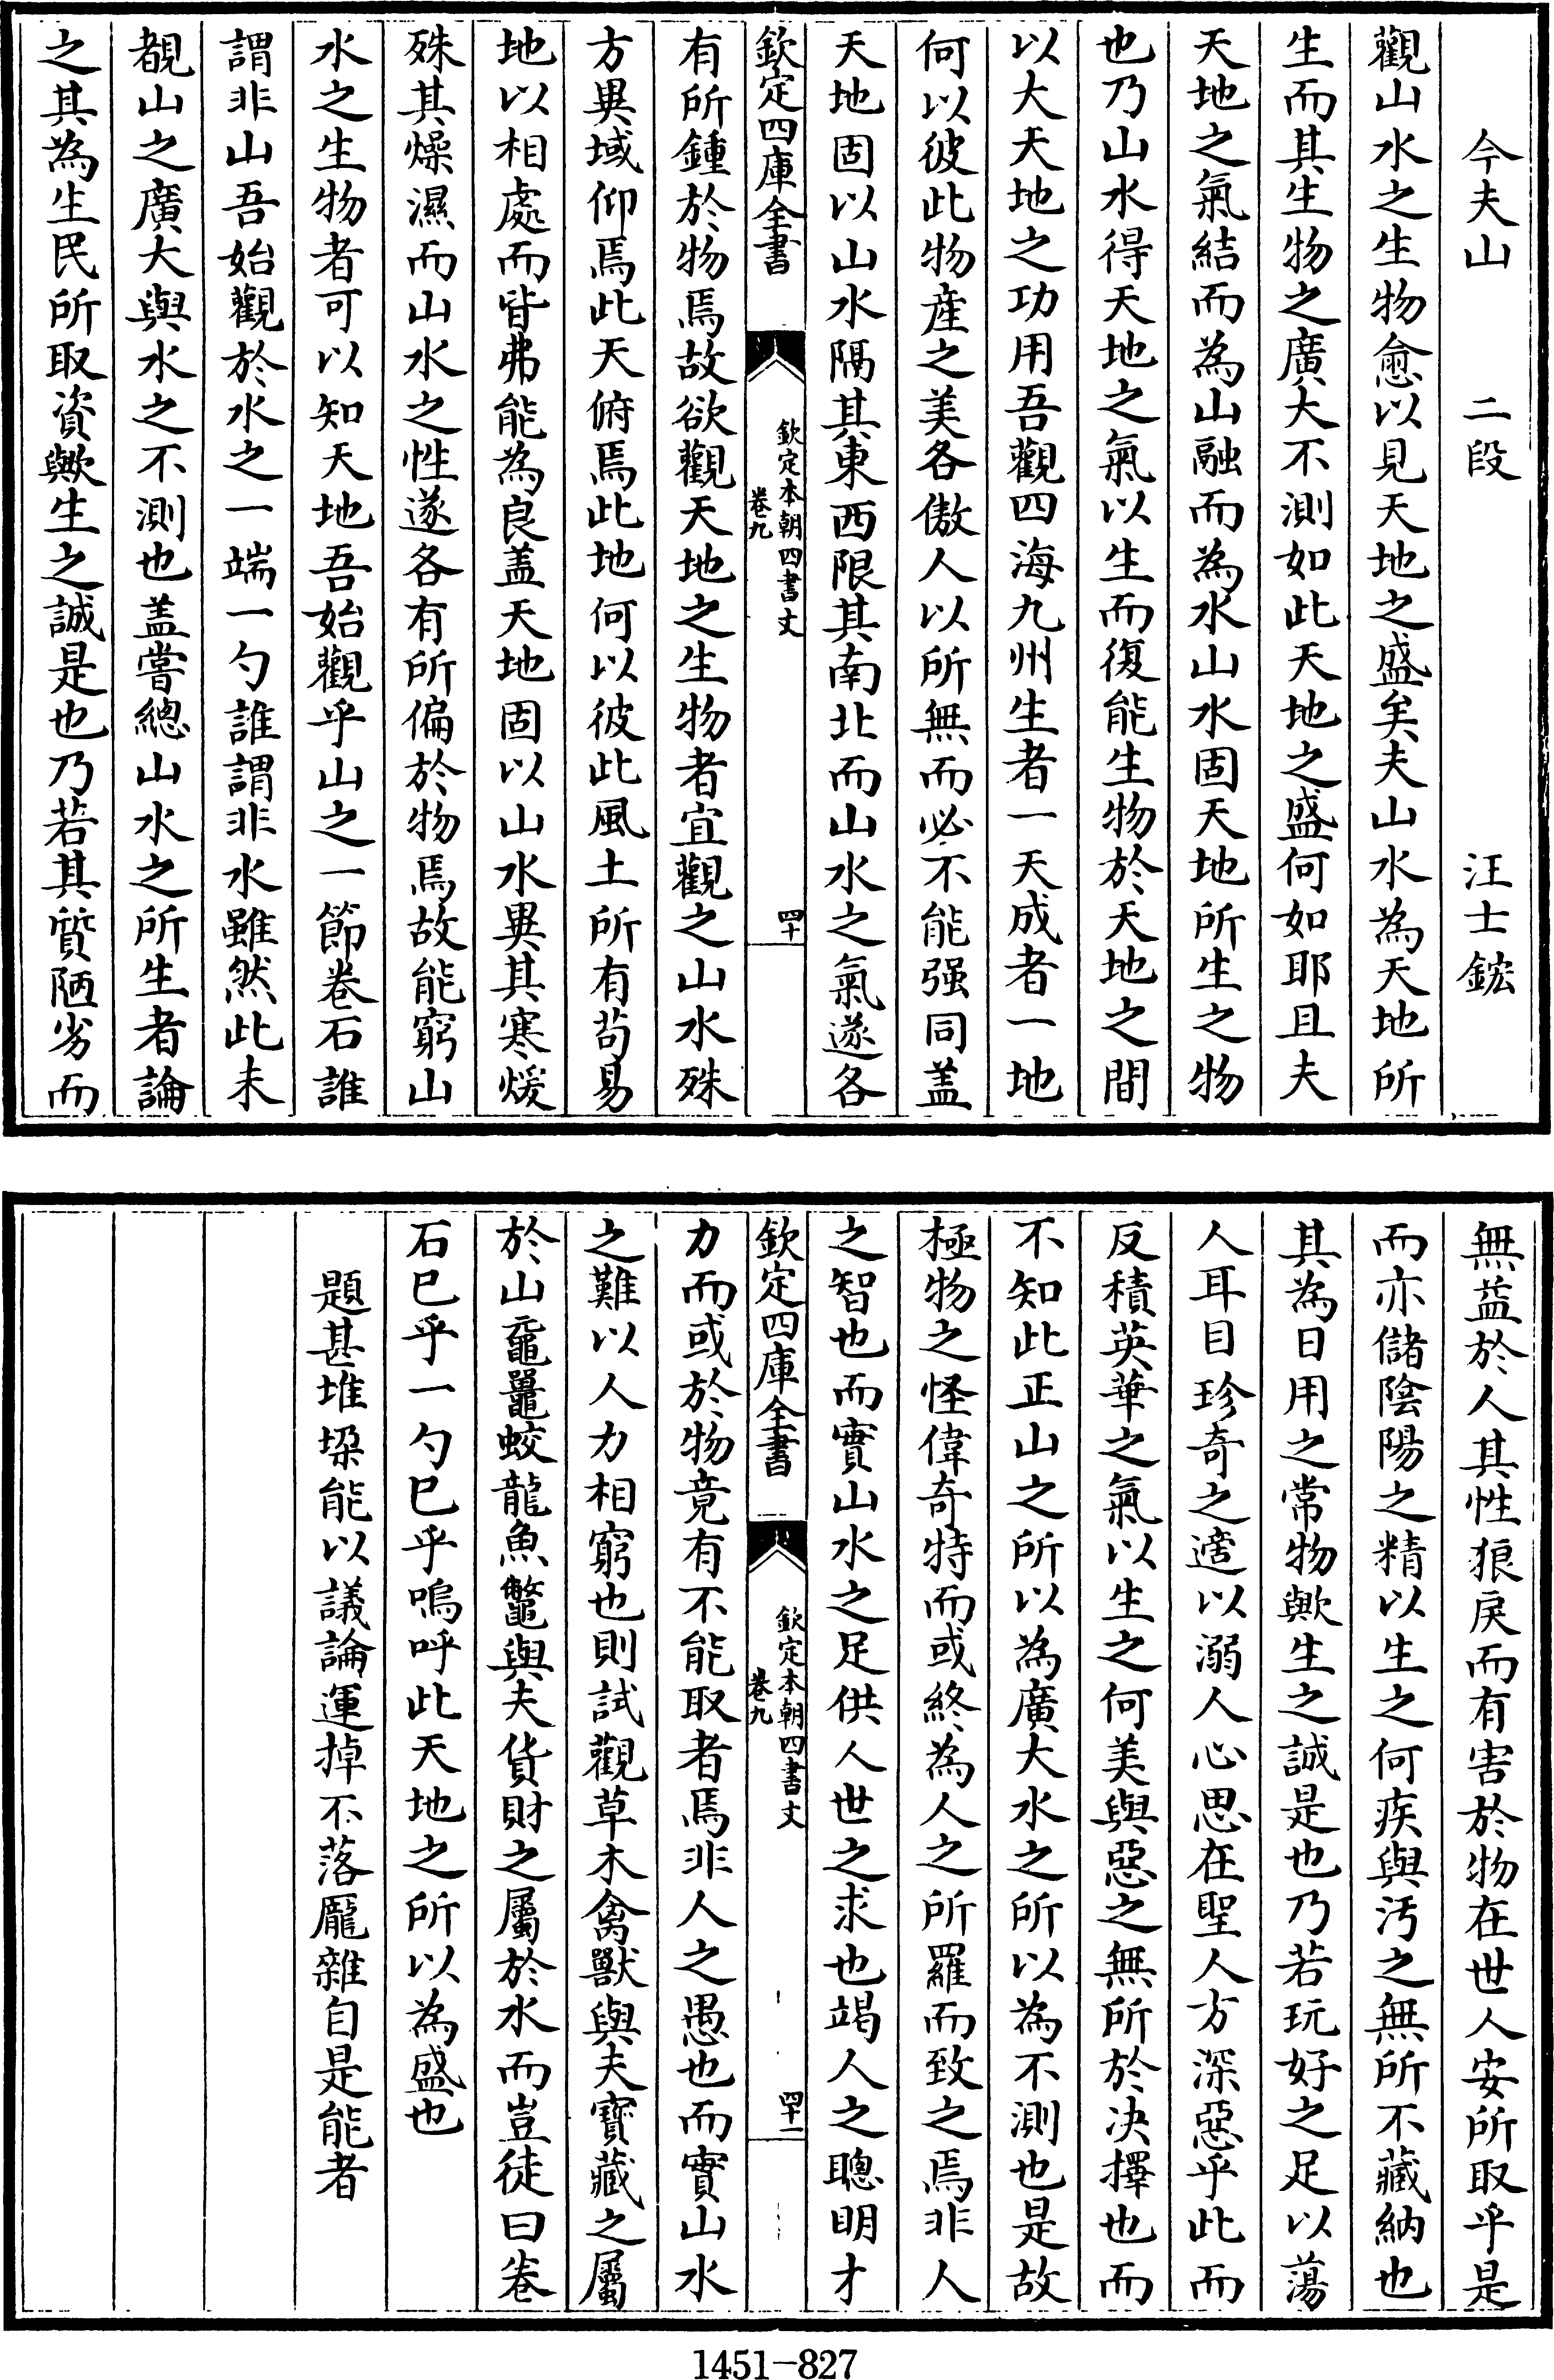 今夫山　二段　汪士鋐
觀山水之生物愈以見天地之盛矣夫山水為天地所
生而其生物之廣大不測如此天地之盛何如耶且夫
天地之氣結而為山融而為水山水固天地所生之物
也乃山水得天地之氣以生而復能生物於天地之間
以大天地之功用吾觀四海九州生者一天成者一地
何以彼此物產之美各傲人以所無而必不能强同盖
天地固以山水隔其東西限其南北而山水之氣遂各
欽定四庫全書
欽定本朝四書文
卷九
四十
有所鍾於物焉故欲觀天地之生物者宜觀之山水殊
方異域仰焉此天俯焉此地何以彼此風土所有茍易
地以相處而皆弗能為良盖天地固以山水異其寒煖
殊其燥濕而山水之性遂各有所偏於物焉故能窮山
水之生物者可以知天地吾始觀乎山之一節卷石誰
謂非山吾始觀於水之一端一勺誰謂非水雖然此未
覩山之廣大與水之不測也盖嘗總山水之所生者論
之其為生民所取資歟生之誠是也乃若其質陋劣而
無益於人其性狼戾而有害於物在世人安所取乎是
而亦儲陰陽之精以生之何疾與汚之無所不藏納也
其為日用之常物歟生之誠是也乃若玩好之足以蕩
人耳目珍奇之適以溺人心思在聖人方深惡乎此而
反積英華之氣以生之何美與惡之無所於决擇也而
不知此正山之所以為廣大水之所以為不測也是故
極物之怪偉奇特而或終為人之所羅而致之焉非人
之智也而實山水之足供人世之求也竭人之聰明才
欽定四庫全書
欽定本朝四書文
卷九
四十一
力而或於物竟有不能取者焉非人之愚也而實山水
之難以人力相窮也則試觀草木禽獸與夫寶藏之屬
於山黿鼉蛟龍魚鼈與夫貨財之屬於水而豈徒曰卷
石已乎一勺已乎嗚呼此天地之所以為盛也
題甚堆垛能以議論運掉不落厖雜自是能者
1451-827